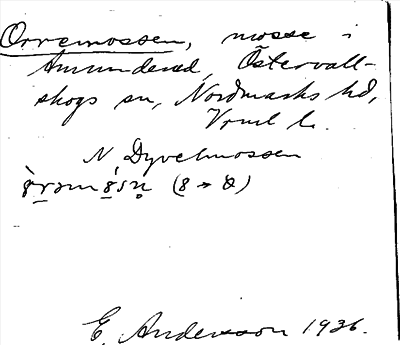 Orremossen, mosse i
Amunderud, Östervall-
skogs sn, Nordmarks hd,
Vrml l.
N. Dyvelmossen
E. Andersson 1936.